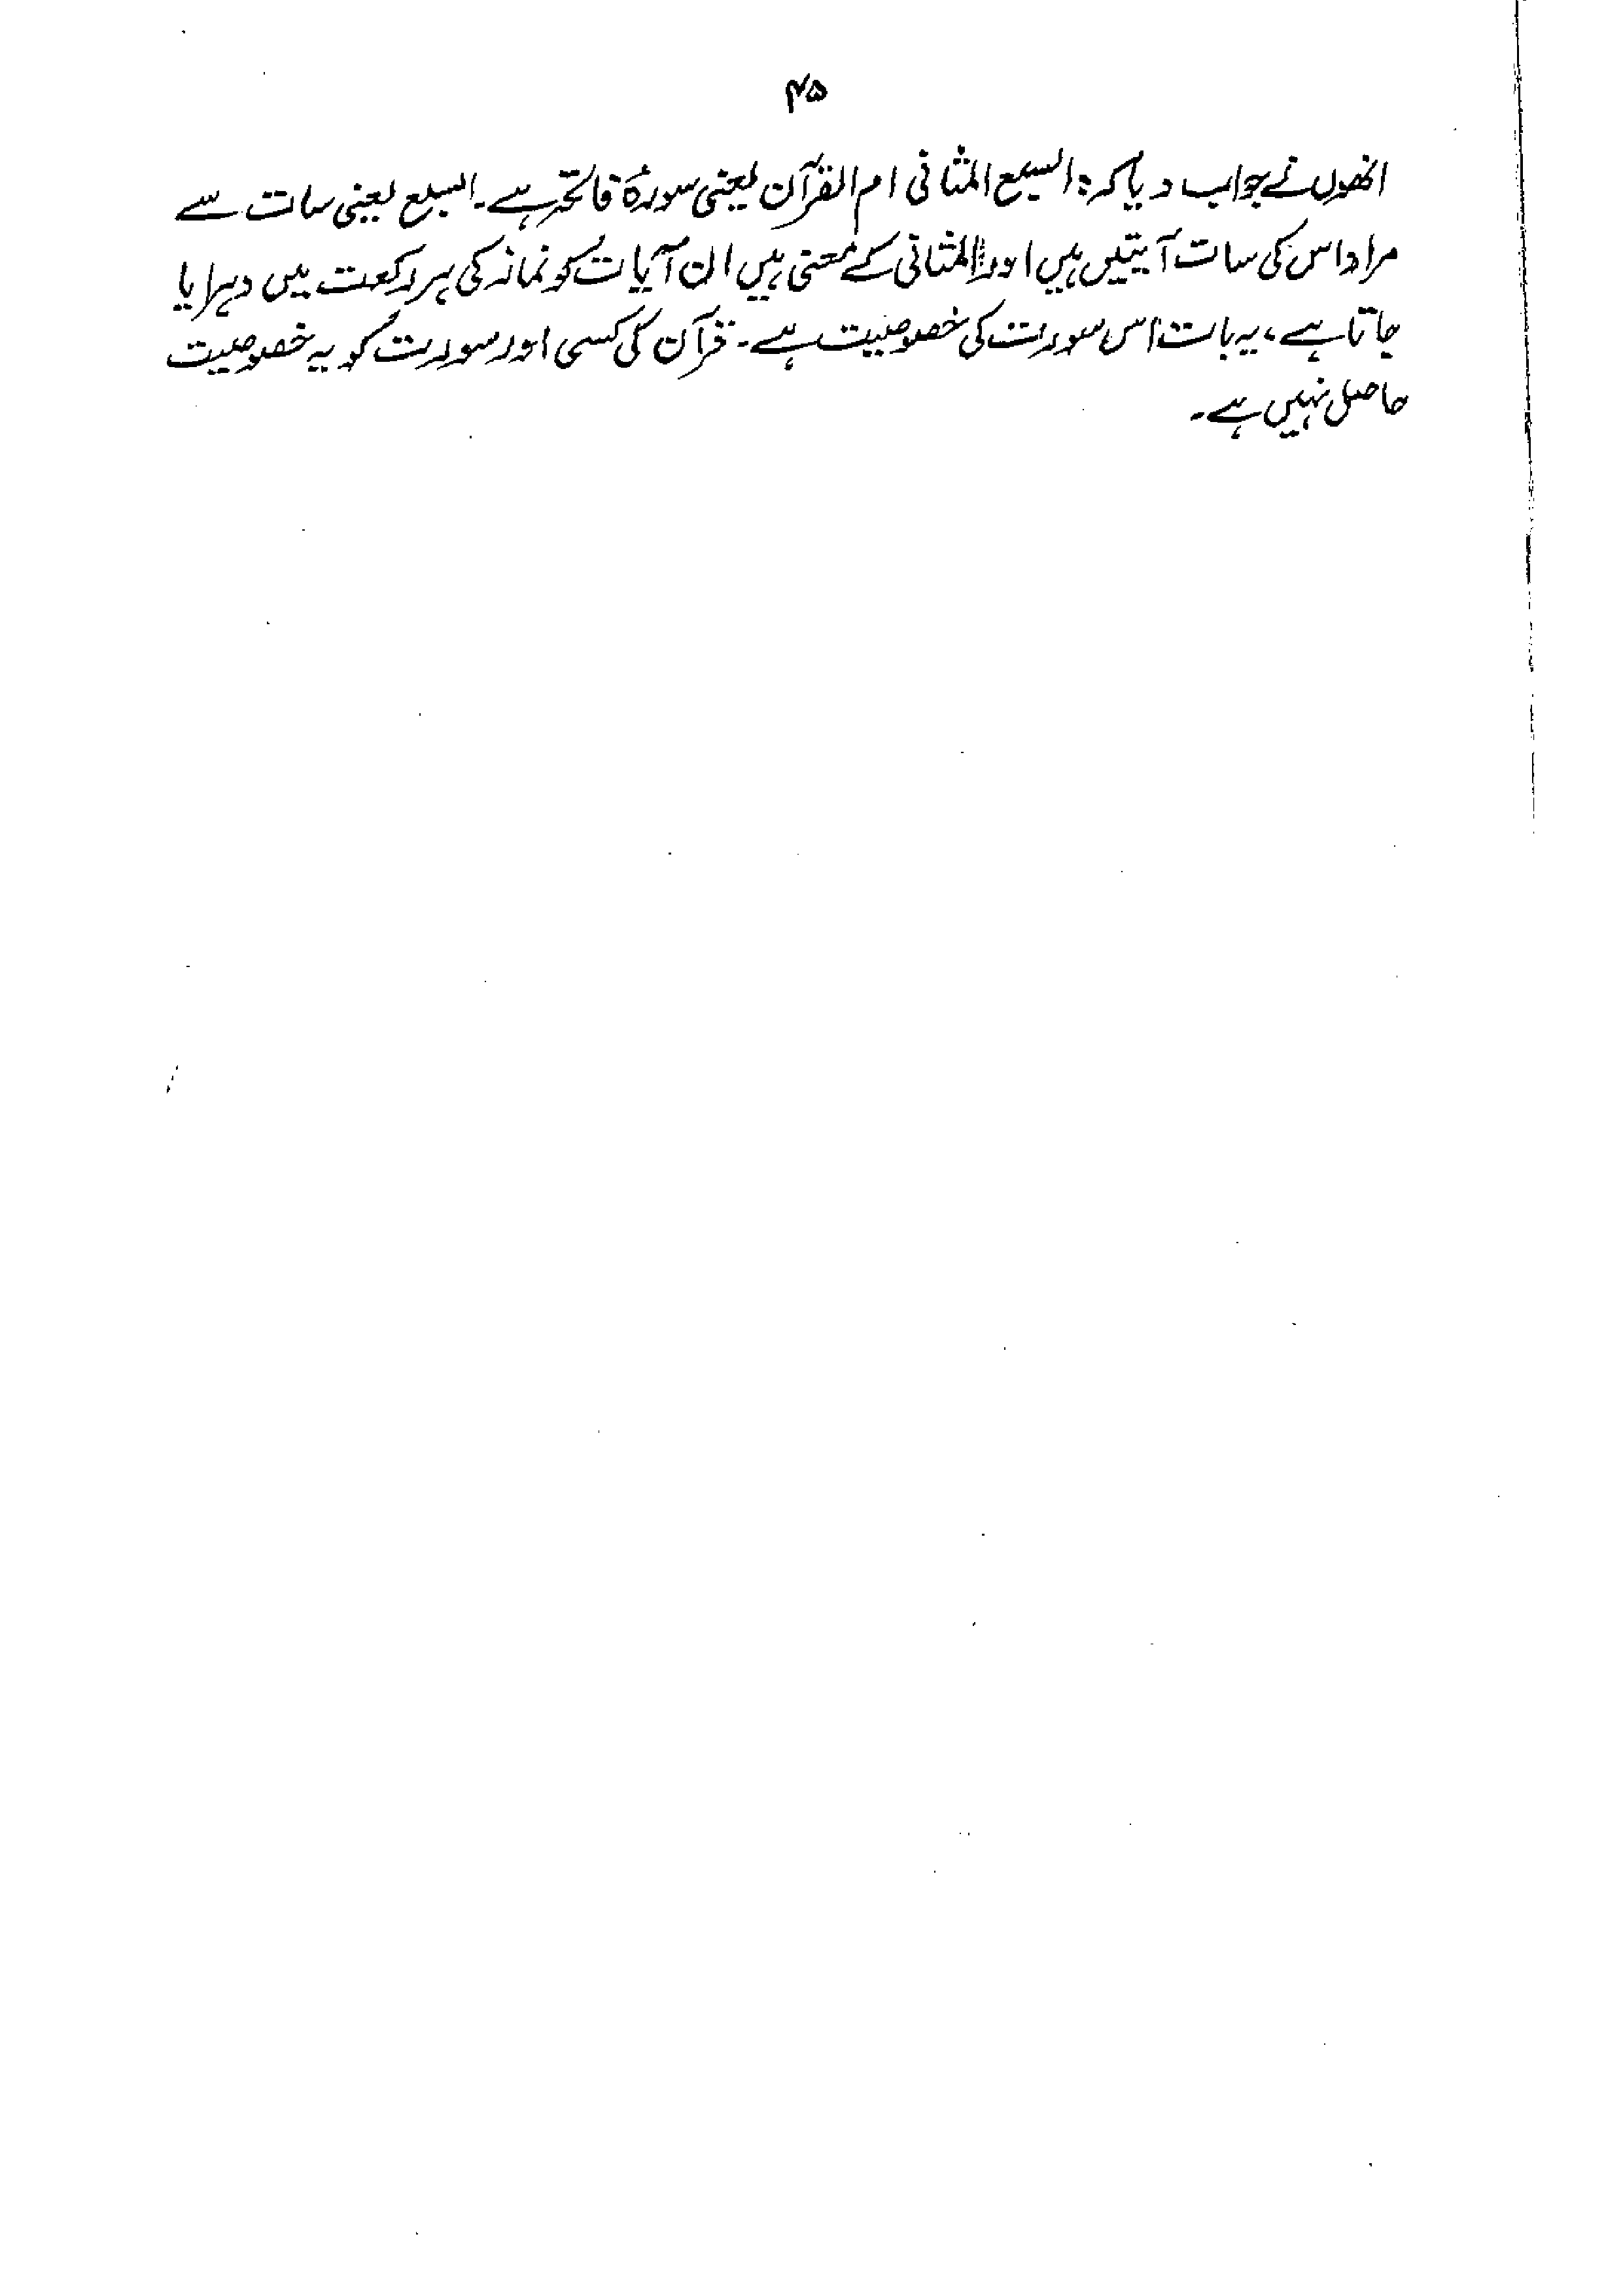 ۴۵
انھوں نے جواب دیا کہ: السبع المثانی ام القرآن یعنی سورۂ فاتحہ ہے۔ السبع یعنی سات سے
مراد اس کی سات آیتیں ہیں اور المثانی کے معنی ہیں ان آیات کو نماز کی ہر رکعت میں دہرایا
جاتا ہے، یہ بات اس سورت کی خصوصیت ہے۔ قرآن کی کسی اور سورت کو یہ خصوصیت
حاصل نہیں ہے۔